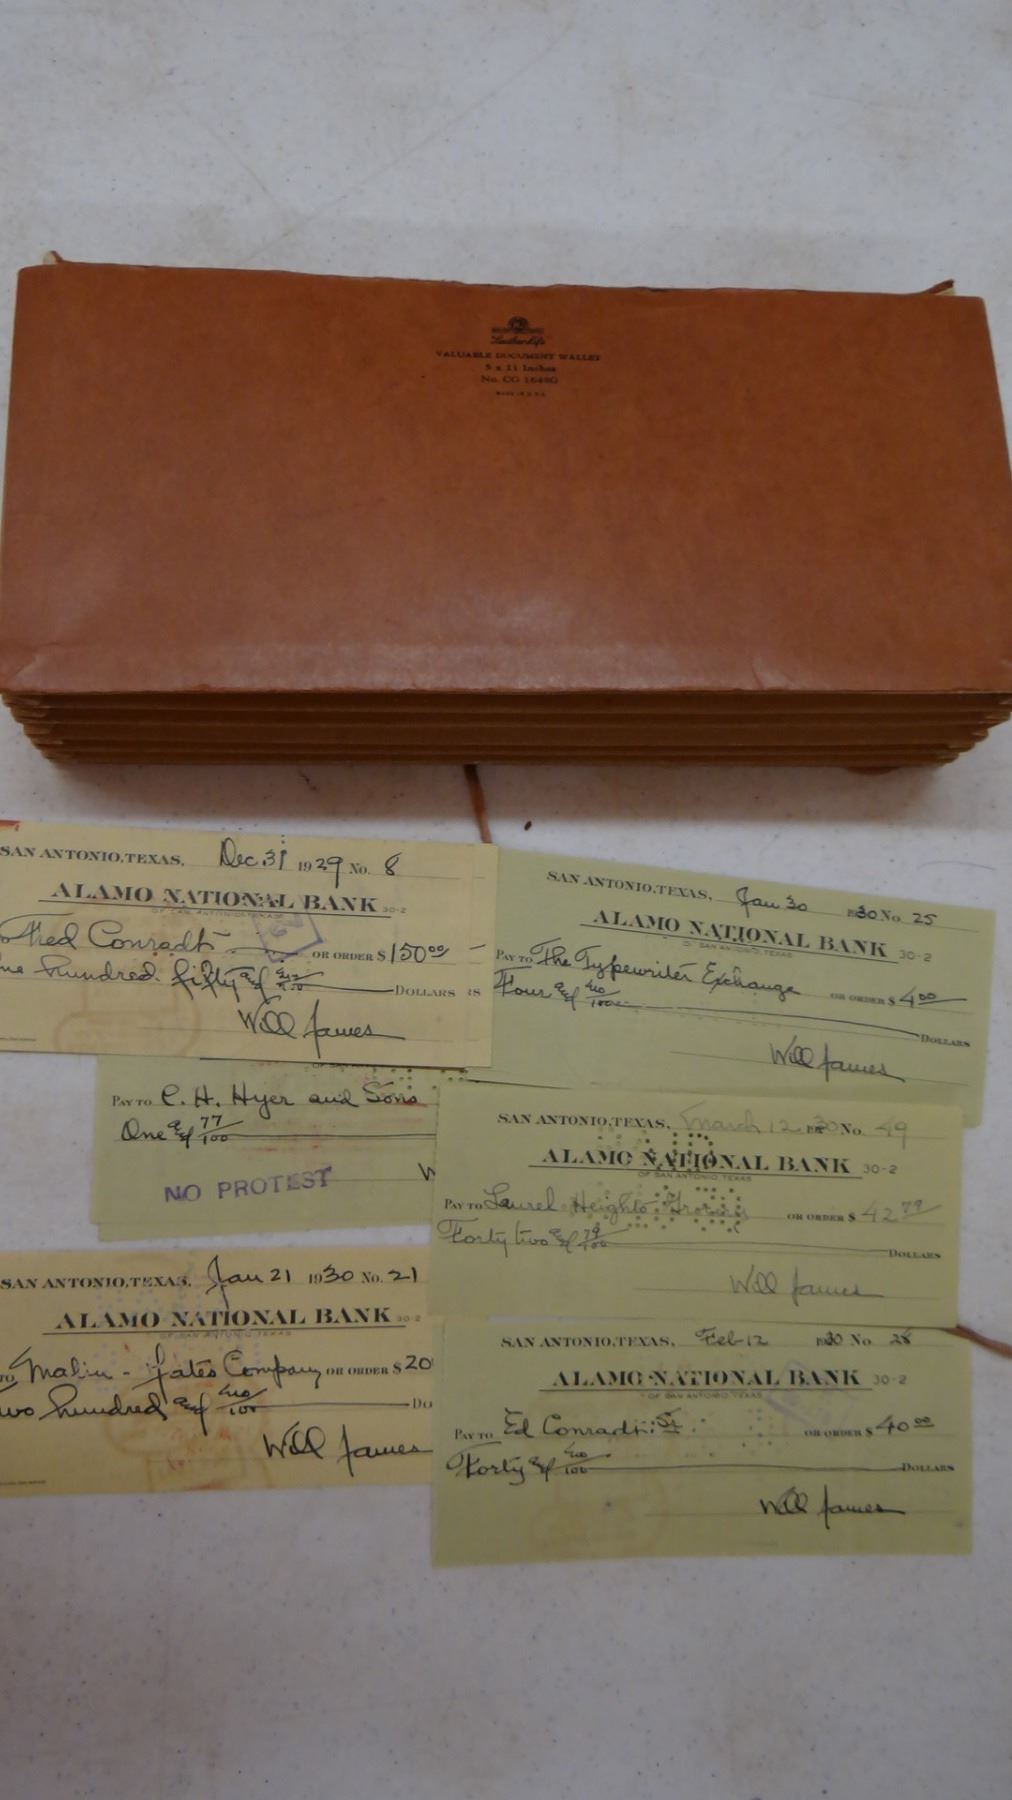 Leather-Life
VALUABLE DOCUMENT WALLET
5 x 11 Inches
No. CG 1648G
MADE IN U.S.A.
SAN ANTONIO, TEXAS, Dec 31 1929 No. 8
ALAMO NATIONAL BANK 30-2
OF SAN ANTONIO, TEXAS
Fred Conradt OR ORDER $ 150 00
One hundred fifty and no/100 DOLLARS
Will James
SAN ANTONIO, TEXAS, Jan 30 1930 No. 25
ALAMO NATIONAL BANK 30-2
OF SAN ANTONIO, TEXAS
PAY TO The Typewriter Exchange OR ORDER $ 4 00
Four and no/100 DOLLARS
Will James
PAY TO C. H. Hyer and Sons
One and 77/100
NO PROTEST
W
SAN ANTONIO, TEXAS, March 12 1930 No. 49
ALAMO NATIONAL BANK 30-2
OF SAN ANTONIO, TEXAS
PAY TO Laurel Heights Grocery OR ORDER $ 42 79
Forty two and 79/100 DOLLARS
Will James
SAN ANTONIO, TEXAS, Jan 21 1930 No. 21
ALAMO NATIONAL BANK 30-2
OF SAN ANTONIO, TEXAS
TO Malin - Yates Company OR ORDER $ 20
wo hundred and no/100 DO
Will James
SAN ANTONIO, TEXAS, Feb 12 1930 No 28
ALAMO NATIONAL BANK 30-2
OF SAN ANTONIO, TEXAS
PAY TO Ed Conradt Sr. OR ORDER $ 40 00
Forty and no/100 DOLLARS
Will James